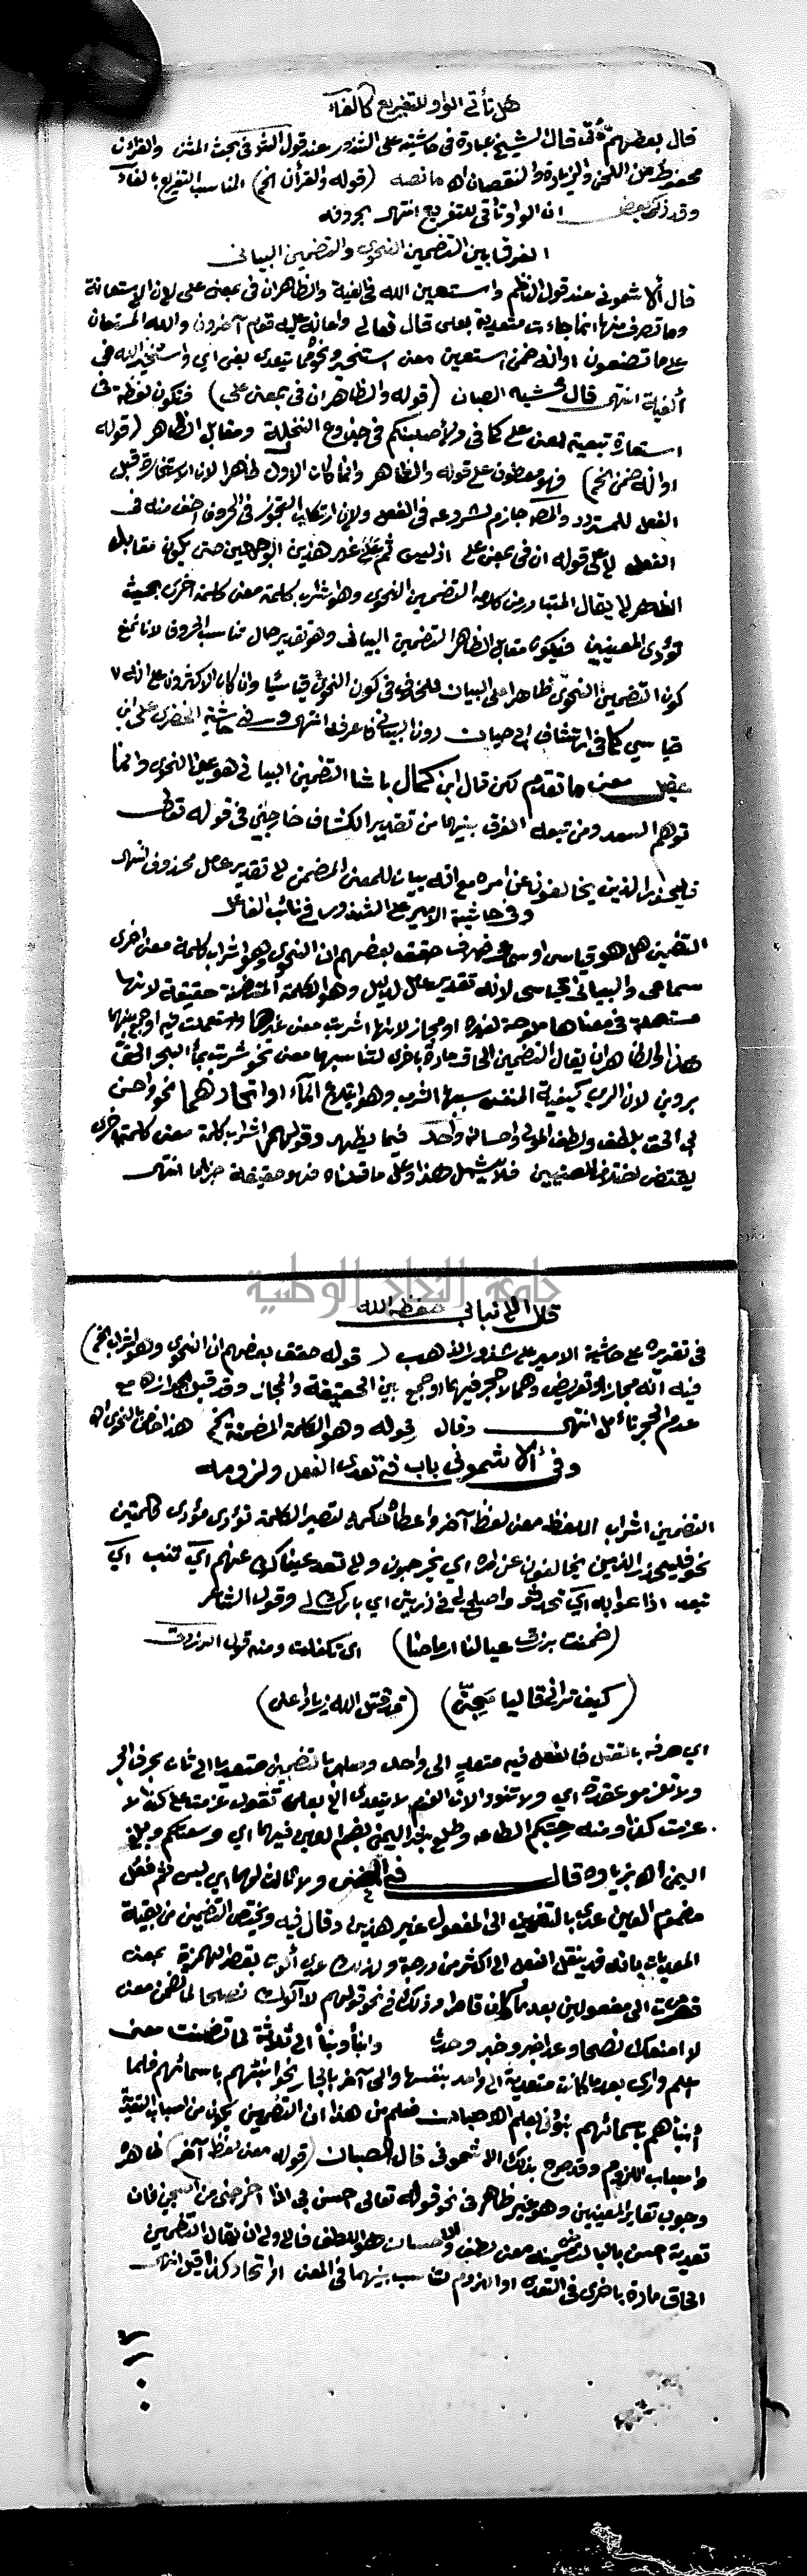 هل تأتي الواو للتفريع كالفاء
قال بعضهم قال الشيخ عبادة في حاشيته على الشذور عند قول في بحث المثنى والقرآن
محفوظ من اللحن والزيادة والنقصان اه ما نصه (قوله والقرآن الخ) المناسب التفريع بالفاء
وقد ذكر بعض ان الواو تأتي للتفريع انتهى بحروفه
الفرق بين التضمين النحوي والتضمين البياني
قال الاشموني عند قول الناظم واستعين الله في الفية والظاهر ان في بمعنى على لان الاستعانة
وما تصرف منها انما جاءت متعدية بعلى قال تعالى واعانه عليه قوم آخرون والله المستعان
على ما تصفون او انه ضمن استعين معنى استخير ونحوه مما يتعدى بفي اي واستخير الله في
ألفية انتهى قال محشيه الصبان (قوله والظاهر ان في بمعنى على) فتكون لفظة في
استعارة تبعية لمعنى على كما في ولأصلبنكم في جذوع النخل ومقابل الظاهر (قوله
او انه ضمن الخ) فهو معطوف على قوله والظاهر وانما كان الاول ظاهرا لان الاستخارة قبل
الفعل للمتردد والمصنف جازم لشروعه في الفعل ولان ارتكاب التجوز في الحروف اخف منه في
الفعل لا على قوله ان في بمعنى على اذ ليس ثم على غير هذين الوجهين حتى يكون مقابل
الظاهر لا يقال المتبادر من كلامه التضمين النحوي وهو اشراب كلمة معنى كلمة اخرى بحيث
تؤدي المعنيين فيكون مقابل الظاهر التضمين البياني وهو تقدير حال مناسب الحروف لانا نمنع
كون التضمين النحوي ظاهرا على البياني للخلاف في كون النحوي قياسيا وان كان الاكثرون على انه
قياسي كما في ارتشاف ابي حيان دون البياني فاعرفه انتهى وفي حاشية الخضري على ابن
عقيل معنى ما تقدم لكن قال ابن كمال باشا التضمين البياني هو عين النحوي وانما
توهم السعد ومن تبعه الفرق بينهما من تقدير الكشاف خارجين في قوله تعالى
فليحذر الذين يخالفون عن امره مع انه بيان للمعنى المضمن لا تقدير عامل محذوف انتهى
وفي حاشية الامير على الشذور في نائب الفاعل
التضمين هل هو قياسي او سماعي حقق بعضهم ان النحوي وهو اشراب كلمة معنى اخرى
سماعي والبياني قياسي لانه تقدير عامل لدليل وهو الكلمة المتضمنة حقيقة لانها
مستعملة في معناها ملوحة لغيره او مجاز لانها اشربت معنى غيرها واستعملت فيه او جمع بينهما
هذا والظاهر ان يقال التضمين الحاق مادة باخرى لتناسبهما معنى نحو شربت بماء البحر الحق
بروين لان الري كيفية للنفس سببها الشرب وهو ابتلاع الماء او اتحادهما نحو احسن
بي الحق بلطف ولطف المولى واحسانه واحد فيما يظهر وقولهم اشراب كلمة معنى كلمة اخرى
يقتضي اختلاف المعنيين فلا يشمل هذا وعلى ما قلناه فهو حقيقة جزما انتهى
قال الانبابي حفظه الله
في تقريره على حاشية الامير على شذور الذهب (قوله حقق بعضهم ان النحوي وهو اشراب الخ)
فيه انه مجاز او تعريض وهما لا حجر فيهما او جمع بين الحقيقة والمجاز وقد قيل بجوازه مع
عدم الحجر تأمل انتهى وقال قوله وهو الكلمة المضمنة الخ هذا خاص بالنحوي اه
وفي الاشموني باب في تعدي الفعل ولزومه
التضمين اشراب اللفظ معنى لفظ آخر واعطاؤه حكمه لتصير الكلمة تؤدي مؤدى كلمتين
نحو فليحذر الذين يخالفون عن امره اي يخرجون ولا تعد عيناك عنهم اي تنب اي
تبعد اذا عوا به اي تحدثوا واصلح لي في ذريتي اي بارك لي وقول الشاعر
(ضمنت برزق عيالنا ارماحنا) اي تكفلت ومنه قول الفرزدق
(كيف تراني قاليا مجني) (قد قتل الله زيادا عني)
اي صرفه بالقتل فالفعل فيه متعد الى واحد وصار بالتضمين متعديا الى ثان بحرف الجر
ولا تعزموا عقدة اي ولا تنووا لان العزم لا يتعدى الا بعلى تقول عزمت على كذا لا
عزمت كذا ومنه رحبتكم الطاعة وطلع بشر اليمن بضم العين فيهما اي وسعتكم وبلغ
اليمن اه بزيادة قال في المغني ولا ثالث لهما اي ليس ثم فعل
مضموم العين عدي بالتضمين الى المفعول غير هذين وقال فيه ويختص التضمين من بقية
المعديات بانه قد ينقل الفعل الى اكثر من درجة ولذلك عدي ألوت بقصر الهمزة بمعنى
قصرت الى مفعولين بعد ما كان قاصرا وذلك في نحو قولهم لا آلوك نصحا لما تضمن معنى
لا امنعك نصحا وعد اخبر وخبر وحدث وانبأ ونبأ الى ثلاثة لما تضمنت معنى
اعلم وارى بعد ما كانت متعدية الى واحد بنفسها والى آخر بالجار نحو انبئهم باسمائهم فلما
أنبأهم باسمائهم نبئوني بعلم اه صبان فعلم من هذا ان التضمين يكون من اسباب التعدية
واسباب اللزوم وقد صرح بذلك الاشموني قال الصبان (قوله معنى لفظ آخر) ظاهره
وجوب تغاير المعنيين وهو غير ظاهر في نحو قوله تعالى احسن بي اذ اخرجني من السجن فان
تعدية احسن بالباء لتضمينه معنى لطف والاحسان هو اللطف فالاولى ان يقال التضمين
الحاق مادة باخرى في التعدي او اللزوم لتناسب بينهما في المعنى او اتحاد كذا قيل انتهى